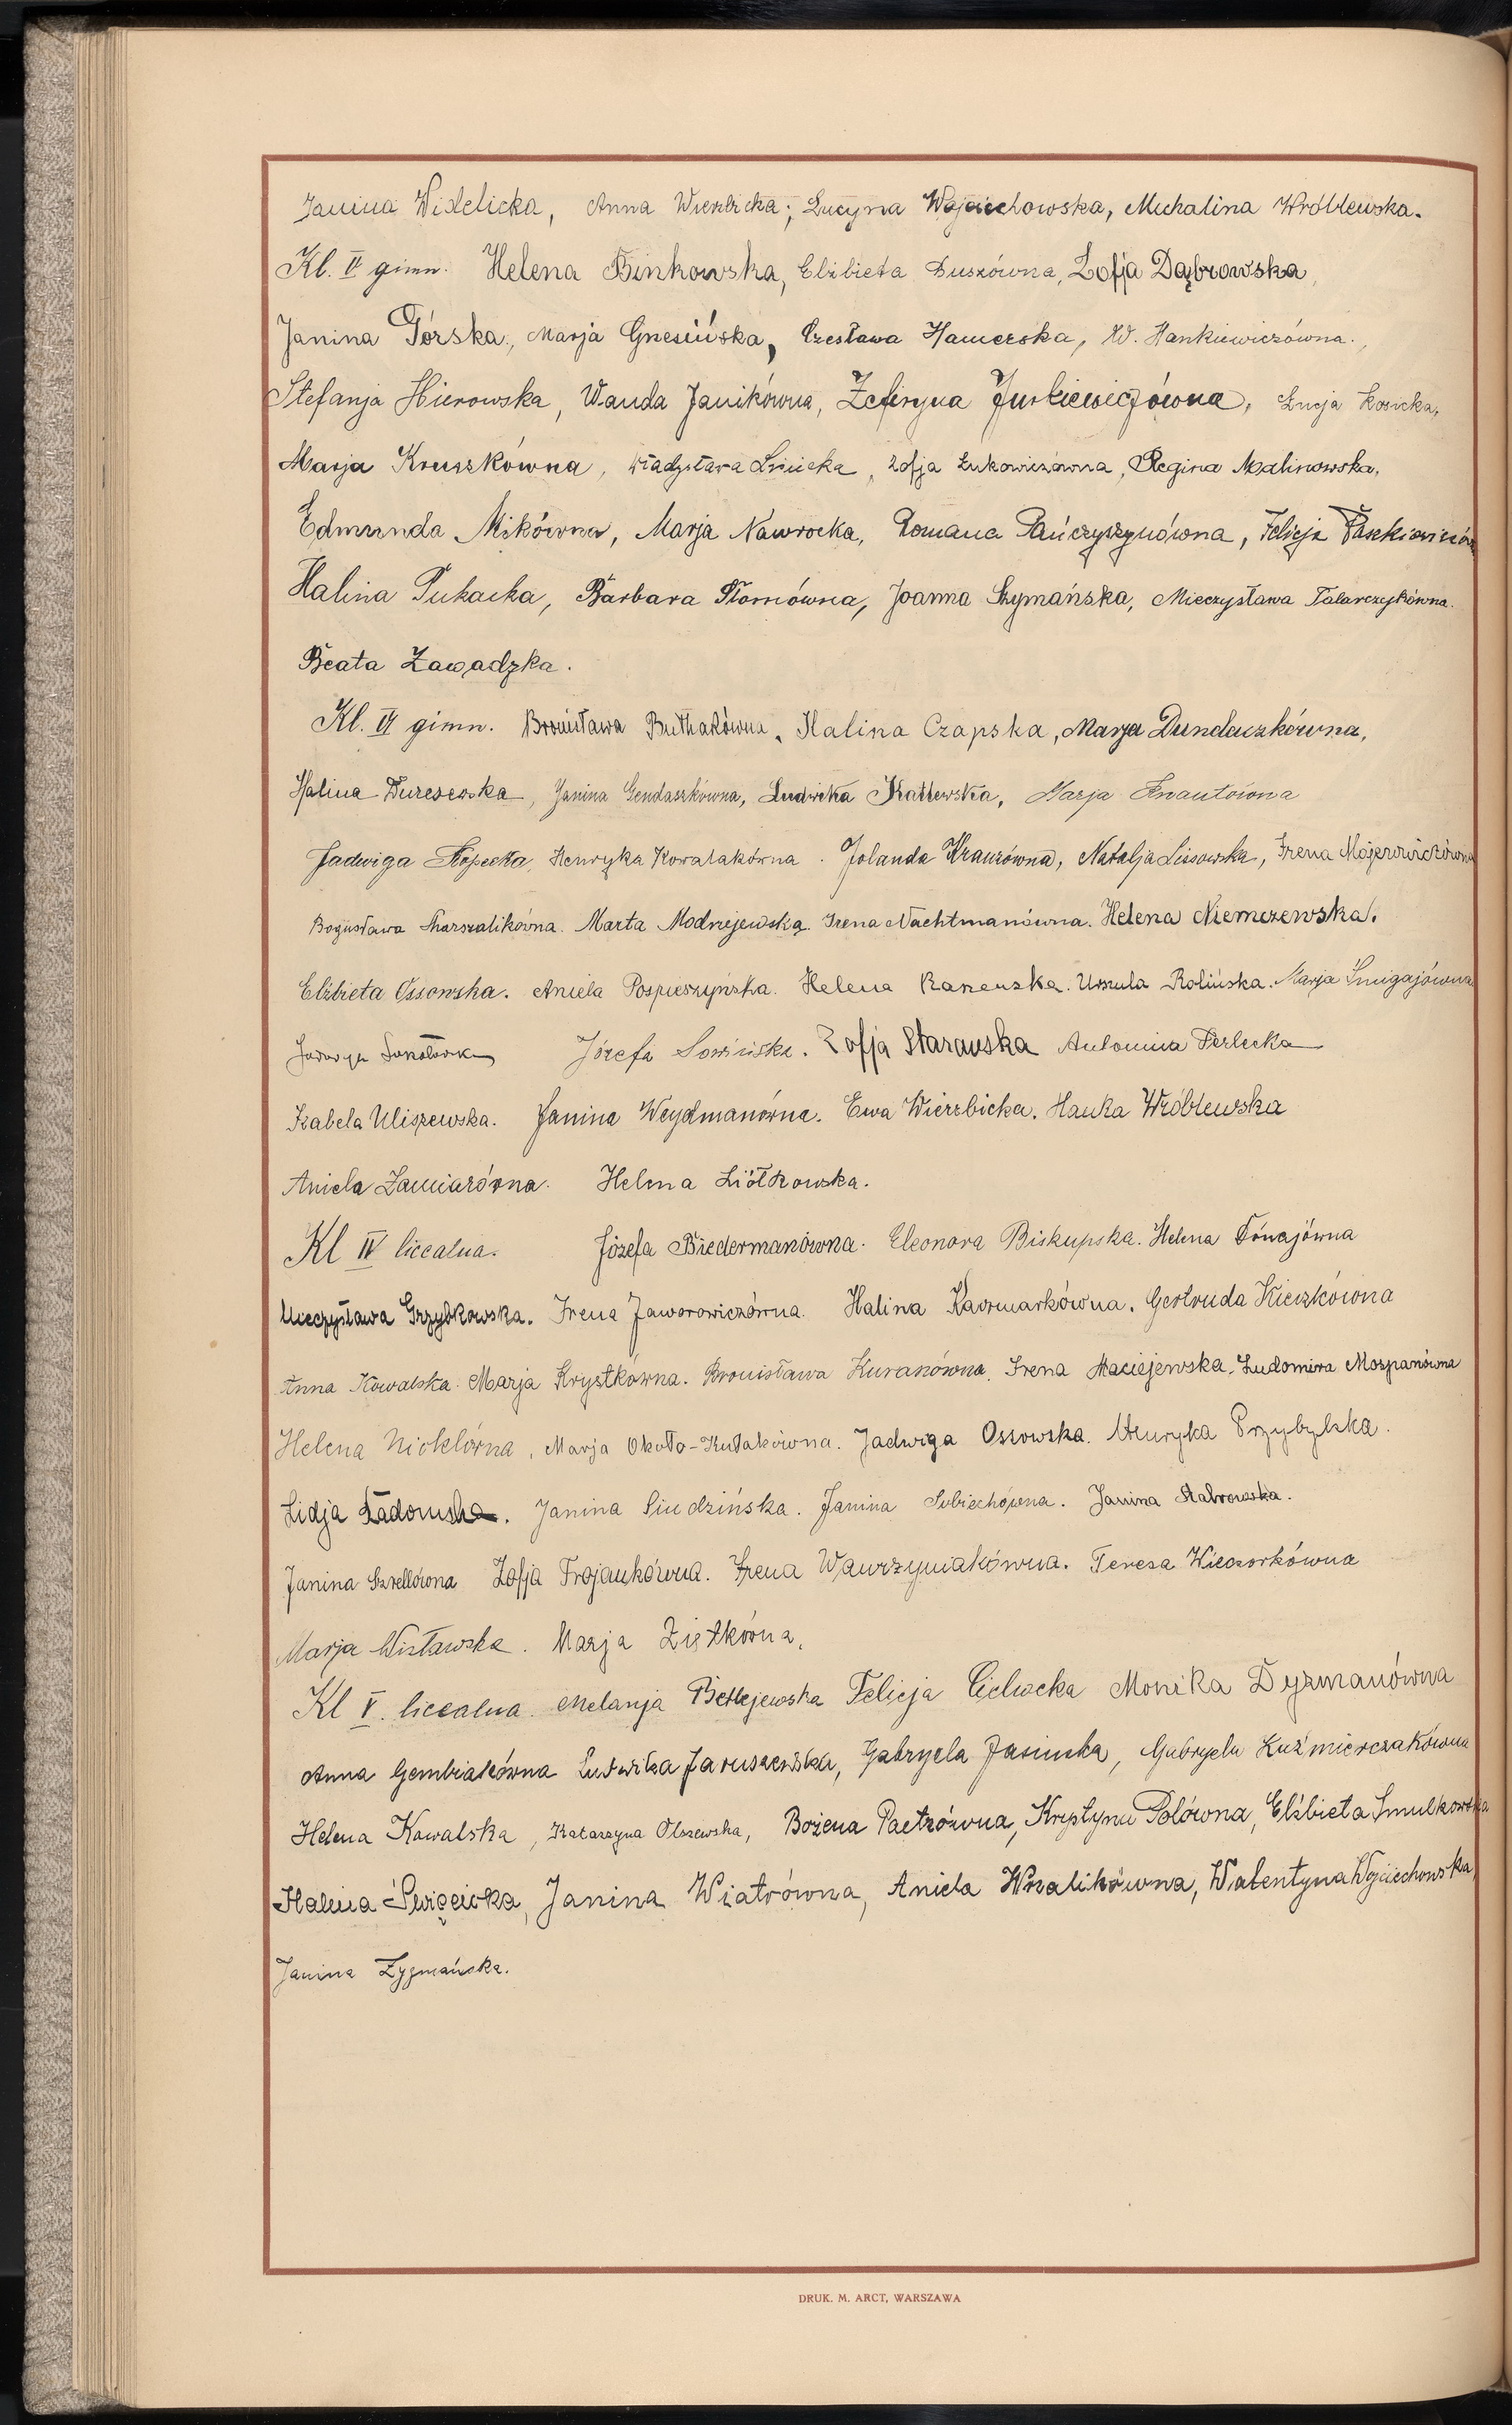 Janina Widelicka, Anna Wierzbicka, Lucyna Wojciechowska, Michalina Wróblewska.
Kl. V gimn. Helena Binkowska, Elżbieta Buszówna, Zofja Dąbrowska,
Janina Górska, Marja Gnesińska, Czesława Hamerska, W. Hankiewiczówna.,
Stefanja Hierowska, Wanda Janikówna, Zefiryna Jurkiewiczówna, Łucja Kosicka,
Marja Kruszkówna, Władysława Lisiecka, Zofja Łukowiczówna, Regina Malinowska,
Edmunda Mikówna, Marja Nawrocka, Romana Pańczyszynówna, Felicja
Halina Pukacka, Barbara Słomówna, Joanna Szymańska, Mieczysława Talarczykówna.
Beata Zawadzka.
Kl. VI gimn. Bronisława Buthakówna, Halina Czapska, Marja Dundaczkówna,
Halina Durezewska, Janina Gendaszkówna, Ludwika Kattewska, Marja Knautówna
Jadwiga Kopecka, Henryka Kowalakówna. Jolanda Krauzówna, Natalja Lissowska, Irena Majerowiczówna
Bogusława Marszalikówna. Marta Modrzejewska. Irena Nachtmanówna. Helena Niemczewska.
Elżbieta Ossowska. Aniela Pospieszyńska. Helena Raszewska. Urszula Rolińska. Marja Śmigajówna
Jadwiga Józefa Sowińska. Zofja Starauska Antonina Terlecka
Izabela Uliszewska. Janina Weydmanówna. Ewa Wierzbicka. Hanka Wróblewska
Aniela Zamiarówna. Helena Ziółkowska.
Kl IV licealna. Józefa Biedermanówna. Eleonora Biskupska. Helena Fónajówna
Mieczysława Grzybkowska. Irena Jaworowiczówna. Halina Kaczmarkówna. Gertruda Kieczkówna
Anna Kowalska. Marja Krystkówna. Bronisława Kuranówna. Irena Maciejewska. Ludomira Mospanówna
Helena Nicklówna, Marja Około-Kułakówna. Jadwiga Ossowska. Henryka Przybylska.
Lidja Radomska. Janina Siudzińska. Janina Sobiechówna. Janina Stabrowska.
Janina Szrellówna Zofja Trojankówna. Irena Wawrzyniakówna. Teresa Wieczorkówna
Marja Wisławska. Marja Ziętkówna.
Kl V. licealna. Melanja Betlejewska Felicja Cielucka Monika Dyzmanówna
Anna Gembiakówna Ludwika Jaruszewska, Gabryela Jasińska, Gabryela Kuźmierczakówna
Helena Kowalska, Katarzyna Olszewska, Bożena Paetzówna, Krystyna Polówna, Elżbieta Smulkowska
Halina Święcicka, Janina Wiatrówna, Aniela Wszalikówna, Walentyna Wojciechowska,
Janina Zygmańska.
DRUK. M. ARCT, WARSZAWA